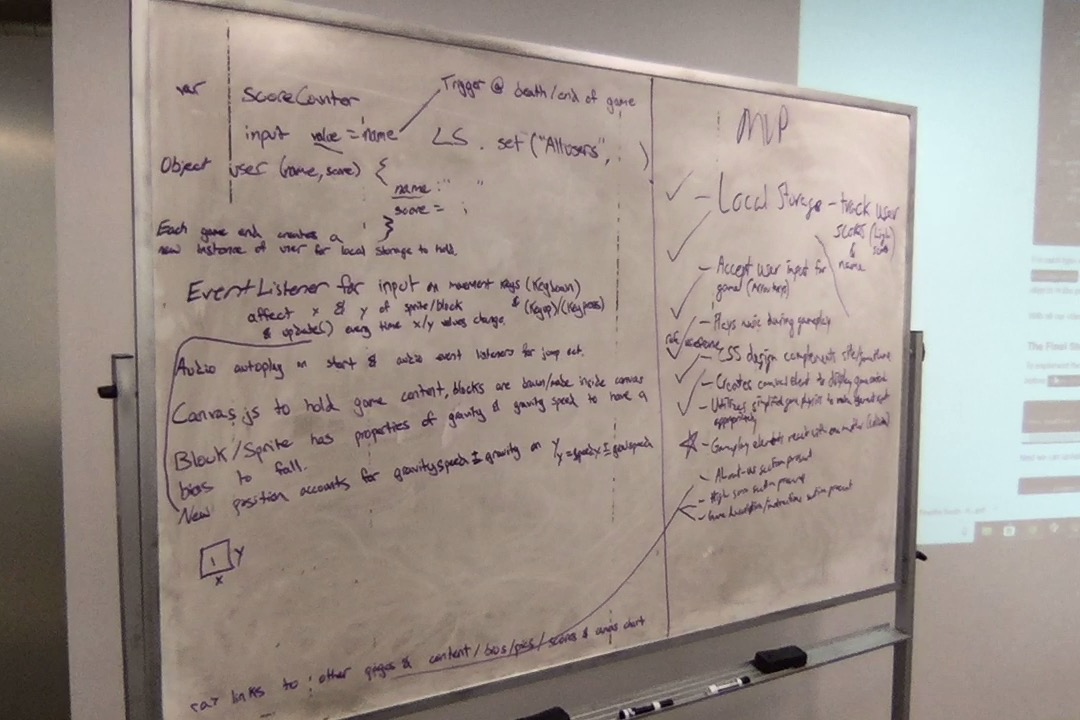 var scoreCounter
Trigger @ death/end of game
input value = name
LS . set ("Allusers", )
Object user (name, score) {
name : " "
score = ;
}
Each game end creates a
new instance of user for local storage to hold.
EventListener for input on movement keys (Keydown)
affect x & y of sprite/block & (Keyup)/(Keypress)
& update() every time x/y values change.
Audio autoplay on start & audio event listeners for jump ect.
Canvas.js to hold game content, blocks are drawn/made inside canvas
Block/Sprite has properties of gravity & gravity speed to have a
bias to fall.
New position accounts for gravityspeed ± gravity on Y
1 Y
X
links to : other pages & content/bios/pics/scores & chart
MVP
- Local Storage - track user
scores (high score)
& name
- Accept user input for
game (Arrow keys)
- Plays music during gameplay
- CSS design complements site/game theme
- Creates canvas element to display game content
- Utilizes simplified game physics to make
appropriately
- Gameplay elements react with one another
- About-us section present
- High score section present
- Game description/instructions section present
The Final St